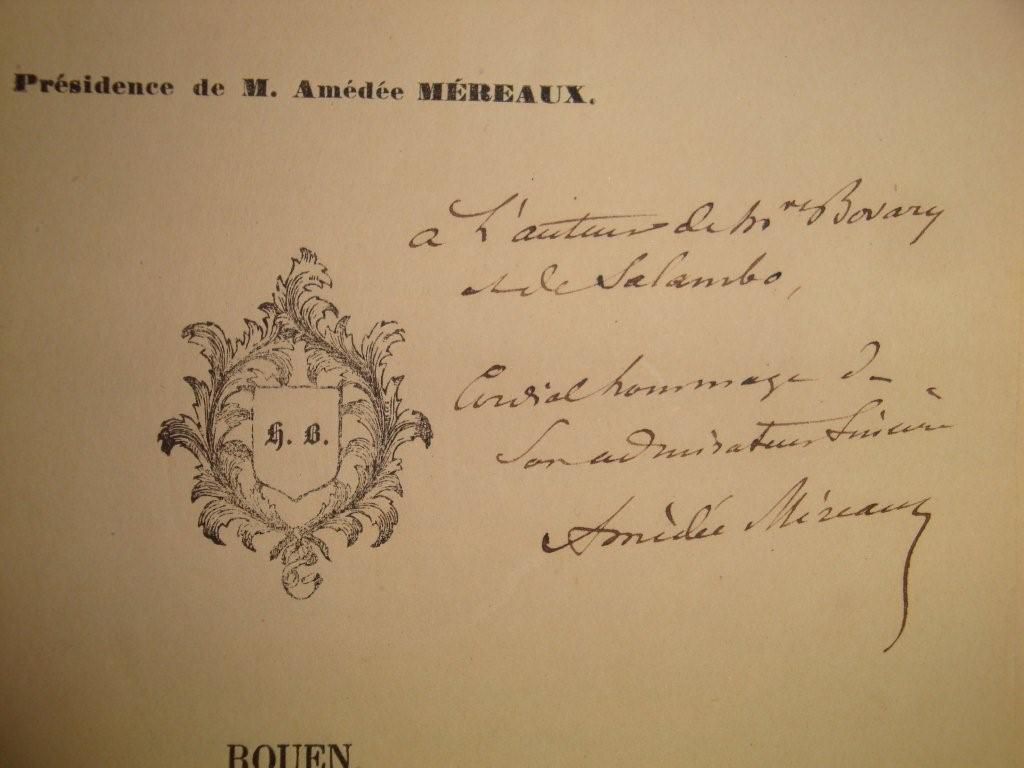 Présidence de M. Amédée MÉREAUX.
a L'auteur de Mme Bovary
et de Salambo,
Cordial hommage de
Son admirateur sincère
Amédée Méreaux
H. B.
ROUEN